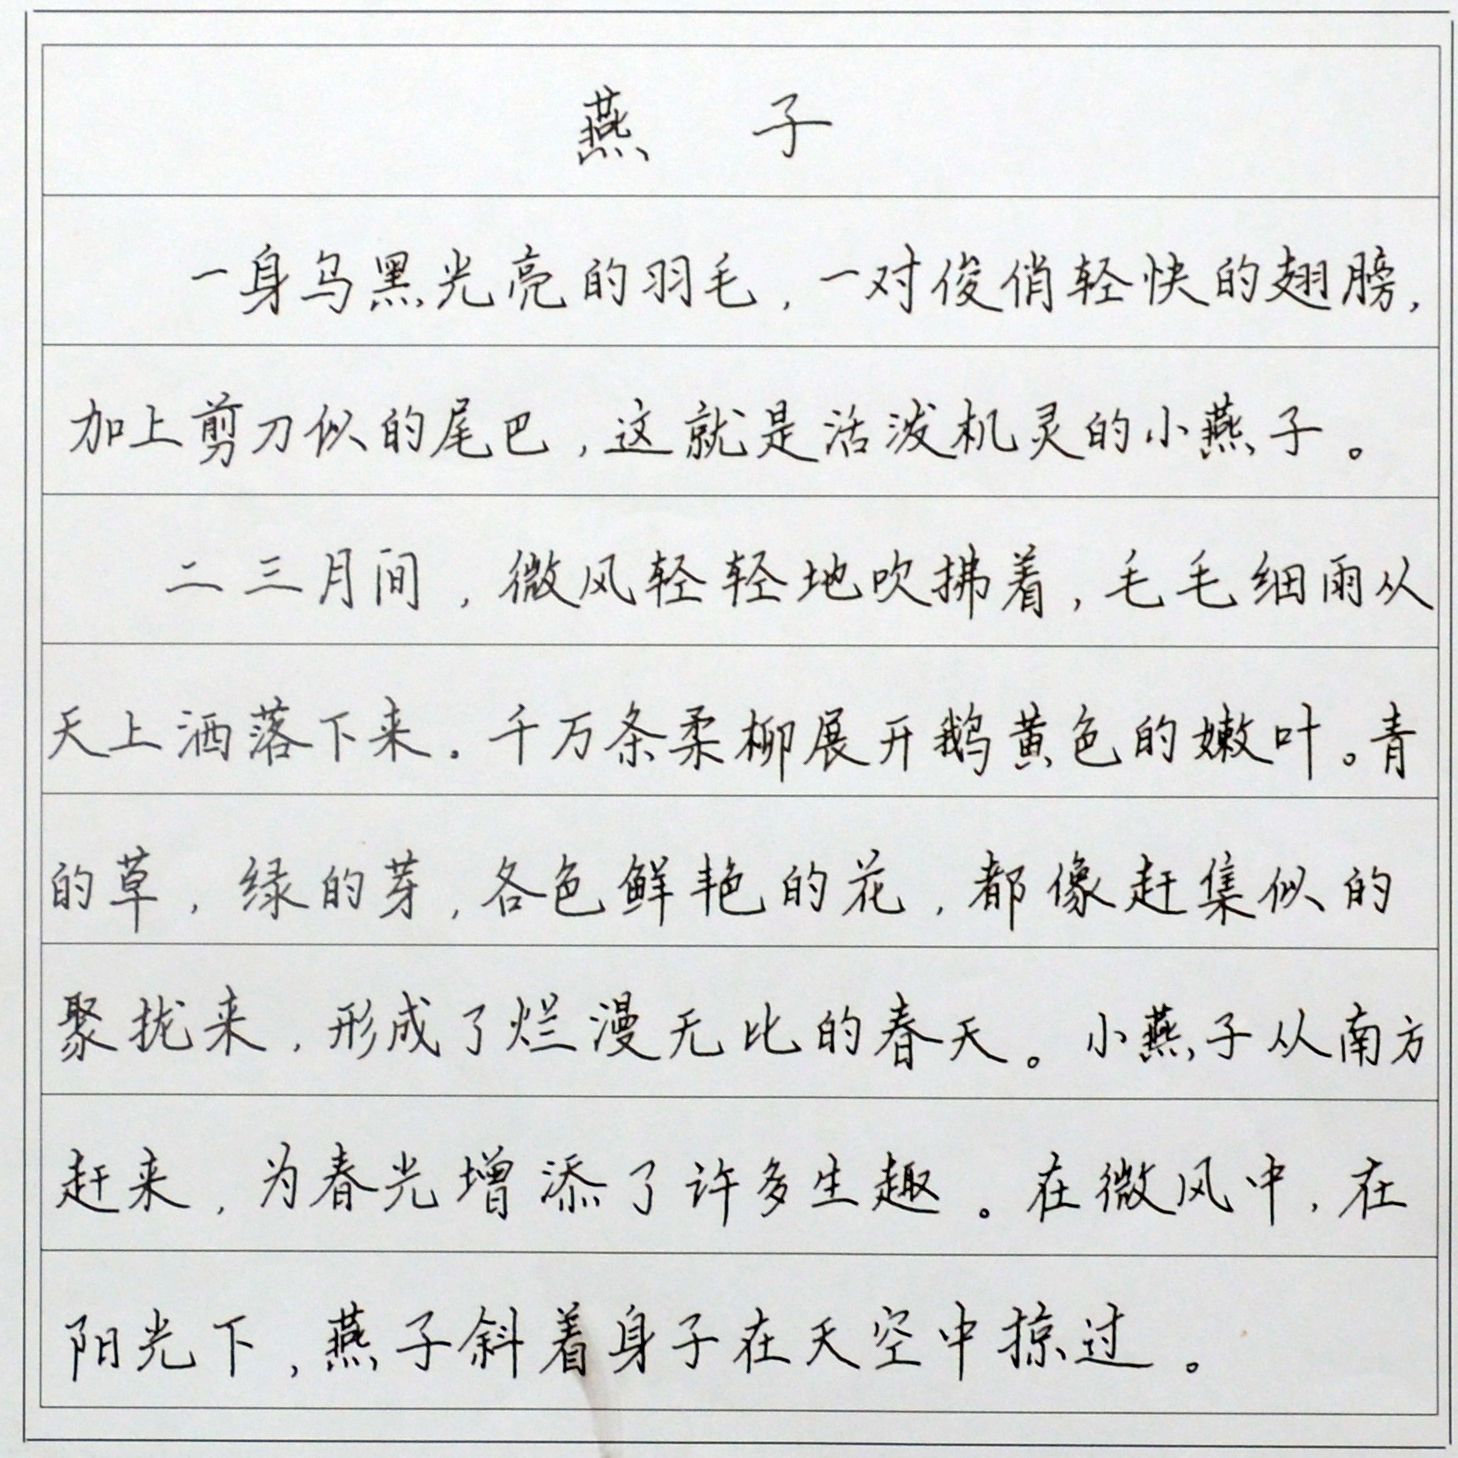 燕 子
一身乌黑光亮的羽毛，一对俊俏轻快的翅膀，
加上剪刀似的尾巴，这就是活泼机灵的小燕子。
二三月间，微风轻轻地吹拂着，毛毛细雨从
天上洒落下来。千万条柔柳展开鹅黄色的嫩叶。青
的草，绿的芽，各色鲜艳的花，都像赶集似的
聚拢来，形成了烂漫无比的春天。小燕子从南方
赶来，为春光增添了许多生趣。在微风中，在
阳光下，燕子斜着身子在天空中掠过。